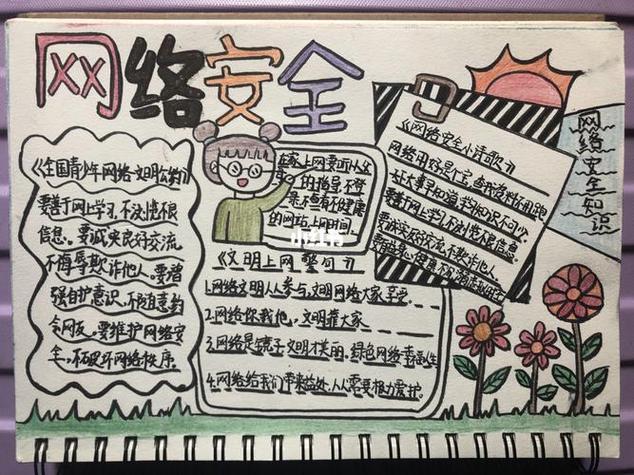 网络安全
《全国青少年网络文明公约》
要善于网上学习,不浏览不良
信息。要诚实友好交流
不侮辱欺诈他人。要增
强自护意识,不随意约
会网友。要维护网络安
全,不破坏网络秩序
在家上网要听从父
的指导,不登
录不查看不健康
的网站上网时间,
小红书
《文明上网警句》
1.网络文明人人参与,文明网络大家享受。
2.网络你我他,文明靠大家
3.网络是镜子文明才美丽。绿色网络幸福人生
4.网络给我们带来益处,人人需要极力爱护。
《网络安全小诗歌》
网络用好是个宝,查阅资料不用跑
好大事早知道,学知识不可少
要善于网上学习,不浏览不良信息
要诚实友好交流,不欺诈他人。
网络安全知识